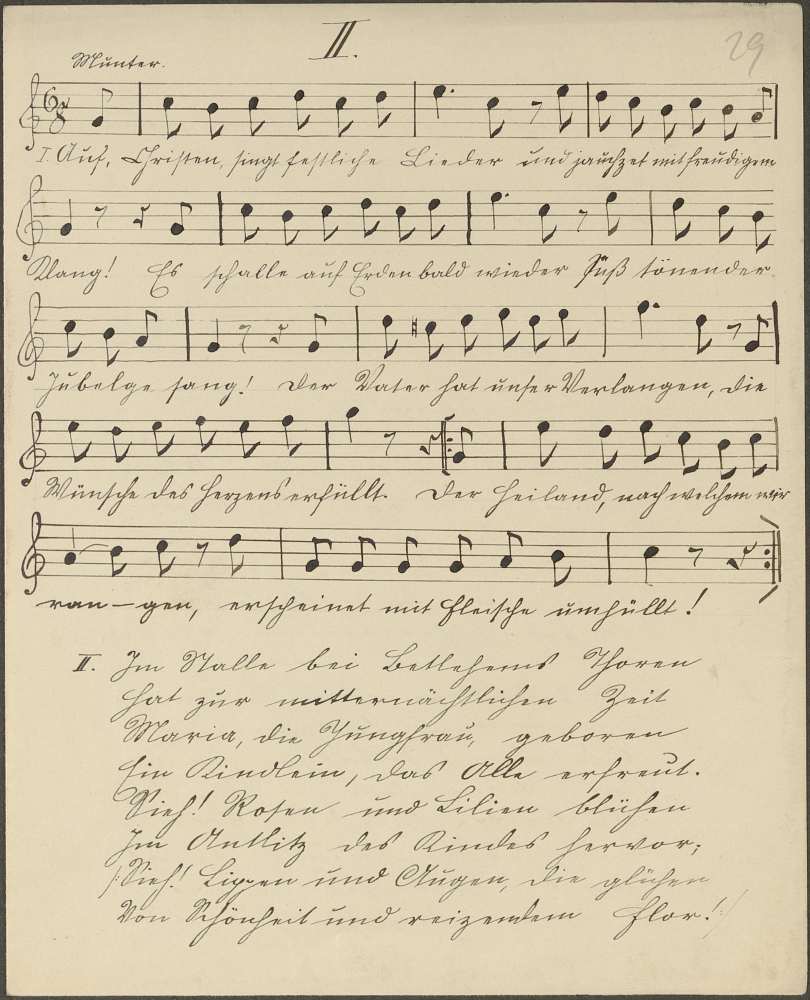 II.
29
Munter.
I. Auf, Christen, singt festliche Lieder und jauchzet mit freudigem
Klang! Es schalle auf Erden bald wieder Süß tönender
Jubelge sang! Der Vater hat unser Verlangen, die
Wünsche des Herzens erfüllt. Der Heiland, nach welchem wir
ran-gen, erscheinet mit Fleische umhüllt!
II. Im Stalle bei Betlehems Thoren
hat zur mitternächtlichen Zeit
Maria, die Jungfrau, geboren
Ein Kindlein, das Alle erfreut.
Sieh! Rosen und Lilien blühen
Im Antlitz des Kindes hervor;
/:Sieh! Lippen und Augen, die glühen
Von Schönheit und reizendem Flor!:/